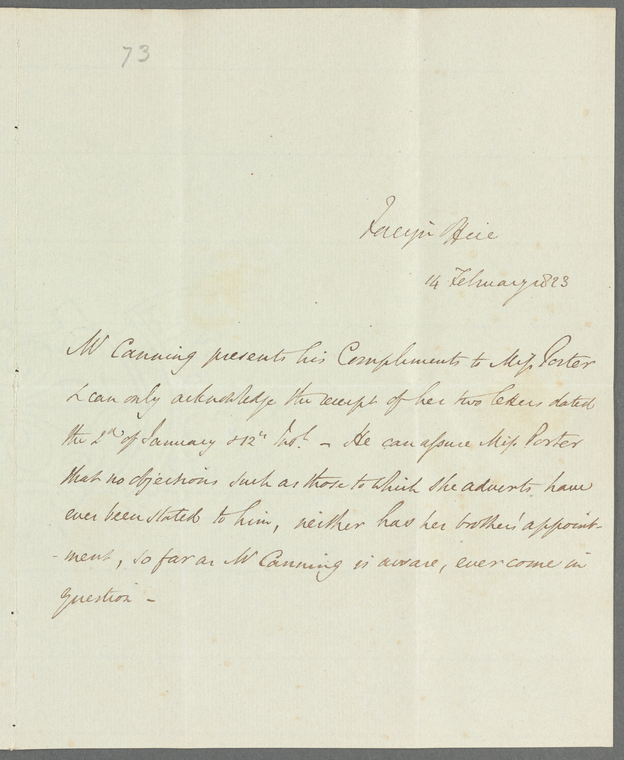 73
Foreign Office
14 February 1823
Mr Canning presents his Compliments to Miss Porter
& can only acknowledge the receipt of her two letters dated
the 2d of January & 12th Inst. – He can assure Miss Porter
that no objections such as those to which she adverts, have
ever been stated to him, neither has her brother's appoint-
-ment, so far as Mr Canning is aware, ever come in
question –